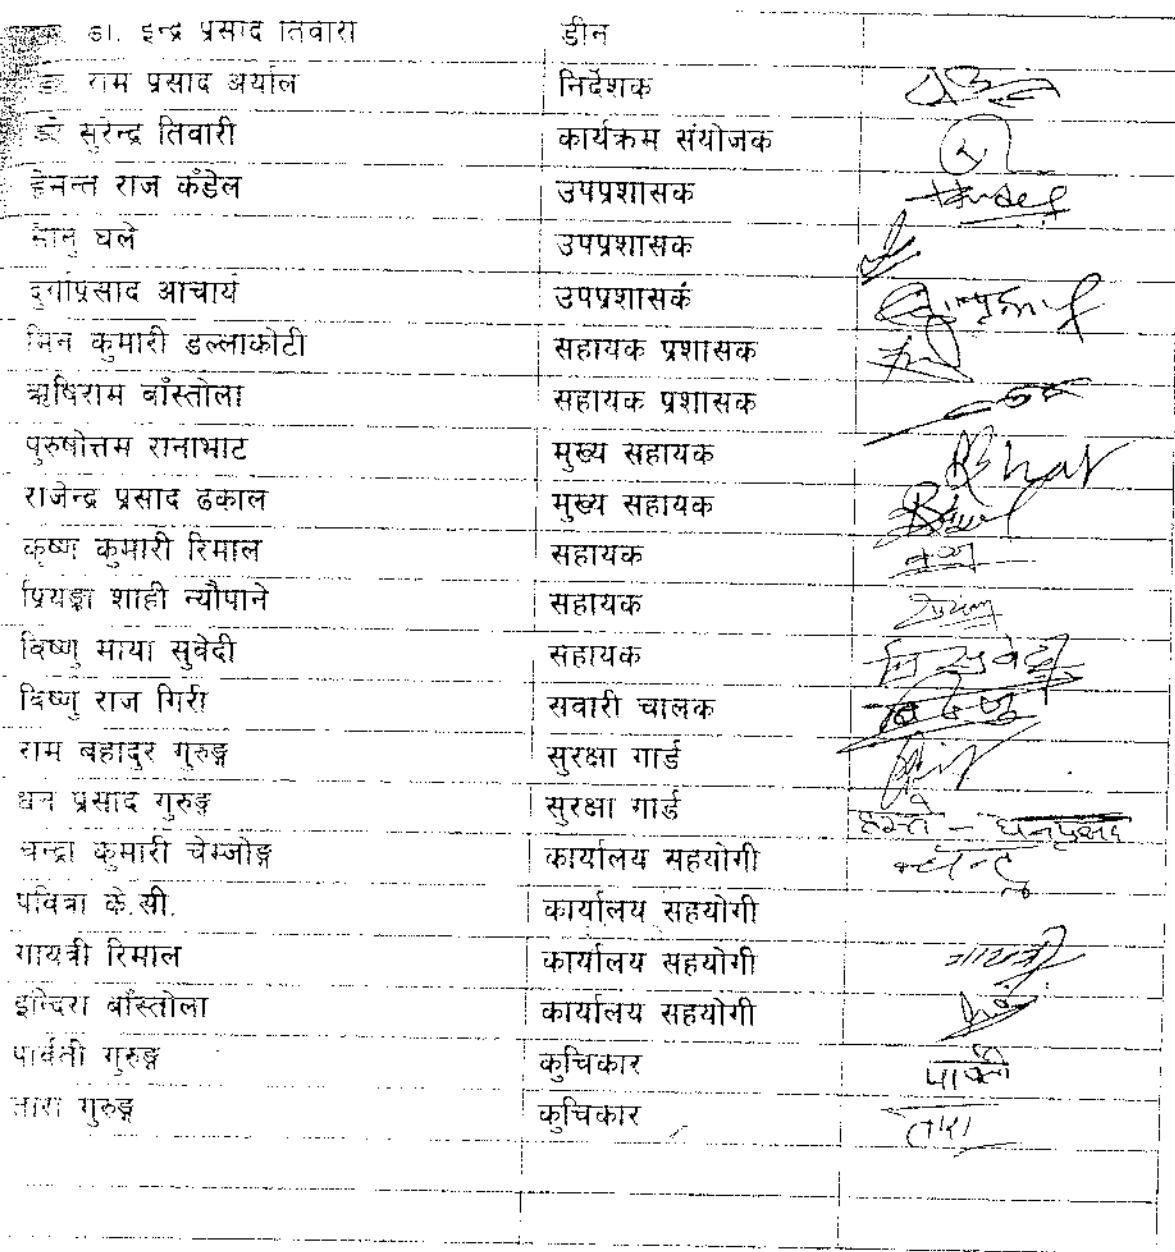 डा. इन्द्र प्रसाद तिवारी डीन
राम प्रसाद अर्याल निर्देशक
सुरेन्द्र तिवारी कार्यक्रम संयोजक
हेमन्त राज कँडेल उपप्रशासक
घले उपप्रशासक
दुर्गाप्रसाद आचार्य उपप्रशासक
मिन कुमारी डल्लाकोटी सहायक प्रशासक
ऋषिराम बाँस्तोला सहायक प्रशासक
पुरुषोत्तम रानाभाट मुख्य सहायक Bhat
राजेन्द्र प्रसाद ढकाल मुख्य सहायक
कृष्ण कुमारी रिमाल सहायक
प्रियङ्का शाही न्यौपाने सहायक
विष्णु माया सुवेदी सहायक वि सुवेदी
विष्णु राज गिरी सवारी चालक
राम बहादुर गुरुङ्ग सुरक्षा गार्ड
धन प्रसाद गुरुङ्ग सुरक्षा गार्ड हस्ते - धनप्रसाद
चन्द्रा कुमारी चेम्जोङ्ग कार्यालय सहयोगी
पवित्रा के.सी. कार्यालय सहयोगी
गायत्री रिमाल कार्यालय सहयोगी गायत्री
इन्दिरा बाँस्तोला कार्यालय सहयोगी
पार्वती गुरुङ्ग कुचिकार
तारा गुरुङ्ग कुचिकार तारा